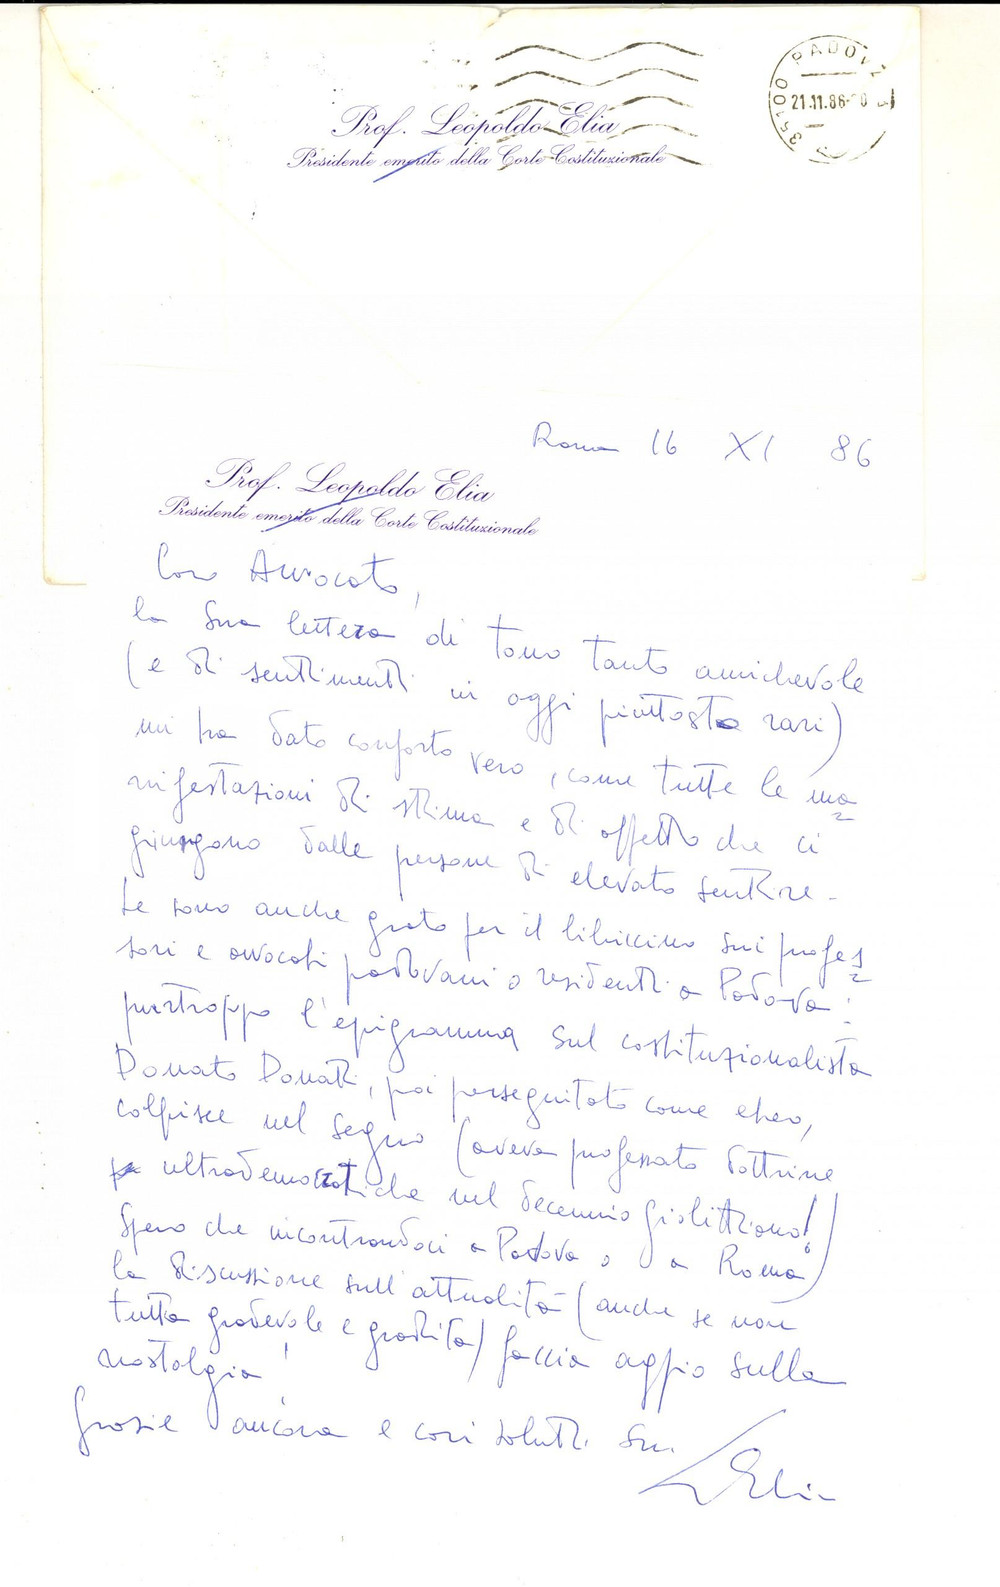 35100 PADOVA
21.11.86
Prof. Leopoldo Elia
Presidente emerito della Corte Costituzionale
Roma 16 XI 86
Prof. Leopoldo Elia
Presidente emerito della Corte Costituzionale
Caro Avvocato,
la Sua lettera di tono tanto amichevole
(e di sentimenti in oggi piuttosto rari)
mi ha dato conforto vero, come tutte le ma=
nifestazioni di stima e di affetto che ci
giungono dalle persone di elevato sentire.
Le sono anche grato per il libriccino sui profes=
sori e avvocati padovani o residenti a Padova:
purtroppo l'epigramma sul costituzionalista
Donato Donati, poi perseguitato come ebreo,
colpisce nel segno (aveva professato dottrine
ultrademocratiche nel decennio giolittiano!)
Spero che incontrandoci a Padova o a Roma
la discussione sull'attualità (anche se non
tutta gradevole e gradita) faccia aggio sulla
nostalgia!
Grazie ancora e cari saluti. Suo
L Elia